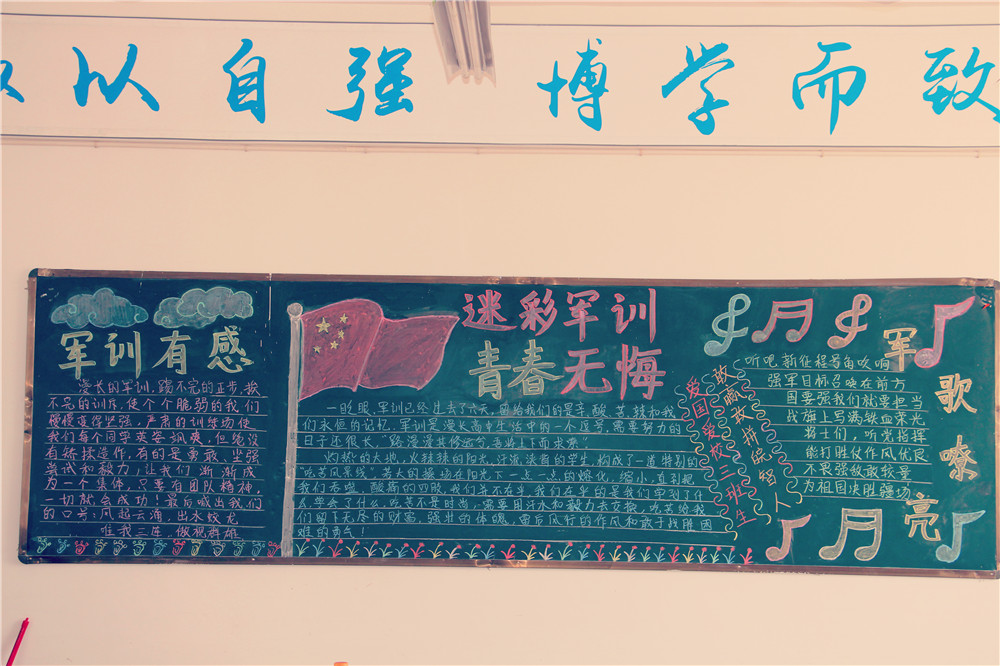 以自强 博学而致
军训有感
漫长的军训,踏不完的正步,换
不完的训斥,使个个脆弱的我们
慢慢变得坚强,严肃的训练场使
我们每个同学英姿飒爽,但绝没
有矫揉造作,有的是勇敢、坚强
尝试和毅力,让我们渐渐成
为一个集体,只要有团队精神,
一切就会成功!最后喊出我们
的口号:风起云涌,出水蛟龙
唯我三连,傲视群雄
迷彩军训
青春无悔
一眨眼,军训已经过去了六天,留给我们的是辛酸、苦辣和我
们永恒的记忆,军训是漫长高中生活中的一个逗号,需要努力的
日子还很长,“路漫漫其修远兮,吾将上下而求索”
灼热的大地,火辣辣的阳光,汗流浃背的学生,构成了一道特别的
“吃苦风景线”。莫大的操场在阳光下一点一点的熔化,缩小,直到视
我们吞噬,酸痛的四肢,我们并不在乎,我们在乎的是我们学到了什
么,学会了什么,吃苦不是时尚,需要用汗水和毅力去交换,吃苦给我
们留下无尽的财富,强壮的体魄,雷厉风行的作风和敢于战胜困
难的勇气!
爱国爱校三班生
敢嘀敢拼统智人
军歌嘹亮
听吧 新征程号角吹响
强军目标召唤在前方
国要强我们就要担当
战旗上写满铁血荣光
将士们,听党指挥
能打胜仗作风优良
不畏强敌敢较量
为祖国决胜疆场